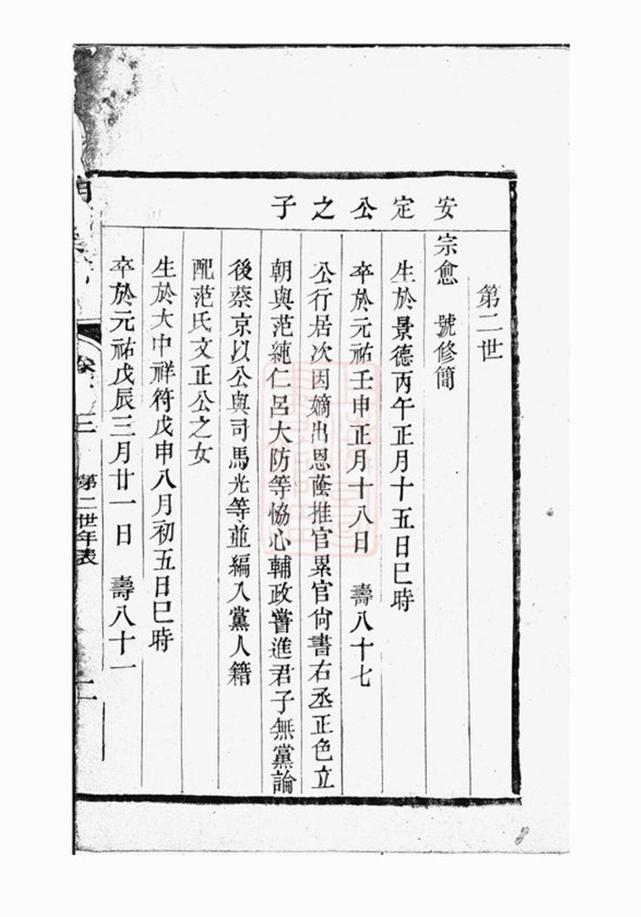 第二世
安定公之子
宗愈 號修簡
生於景德丙午正月十五日巳時
卒於元祐壬申正月十八日 壽八十七
公行居次因嫡出恩蔭推官累官尙書右丞正色立
朝與范純仁呂大防等恊心輔政嘗進君子無黨論
後蔡京以公與司馬光等並編入黨人籍
配范氏文正公之女
生於大中祥符戊申八月初五日巳時
卒於元祐戊辰三月廿一日 壽八十一
第二世年表